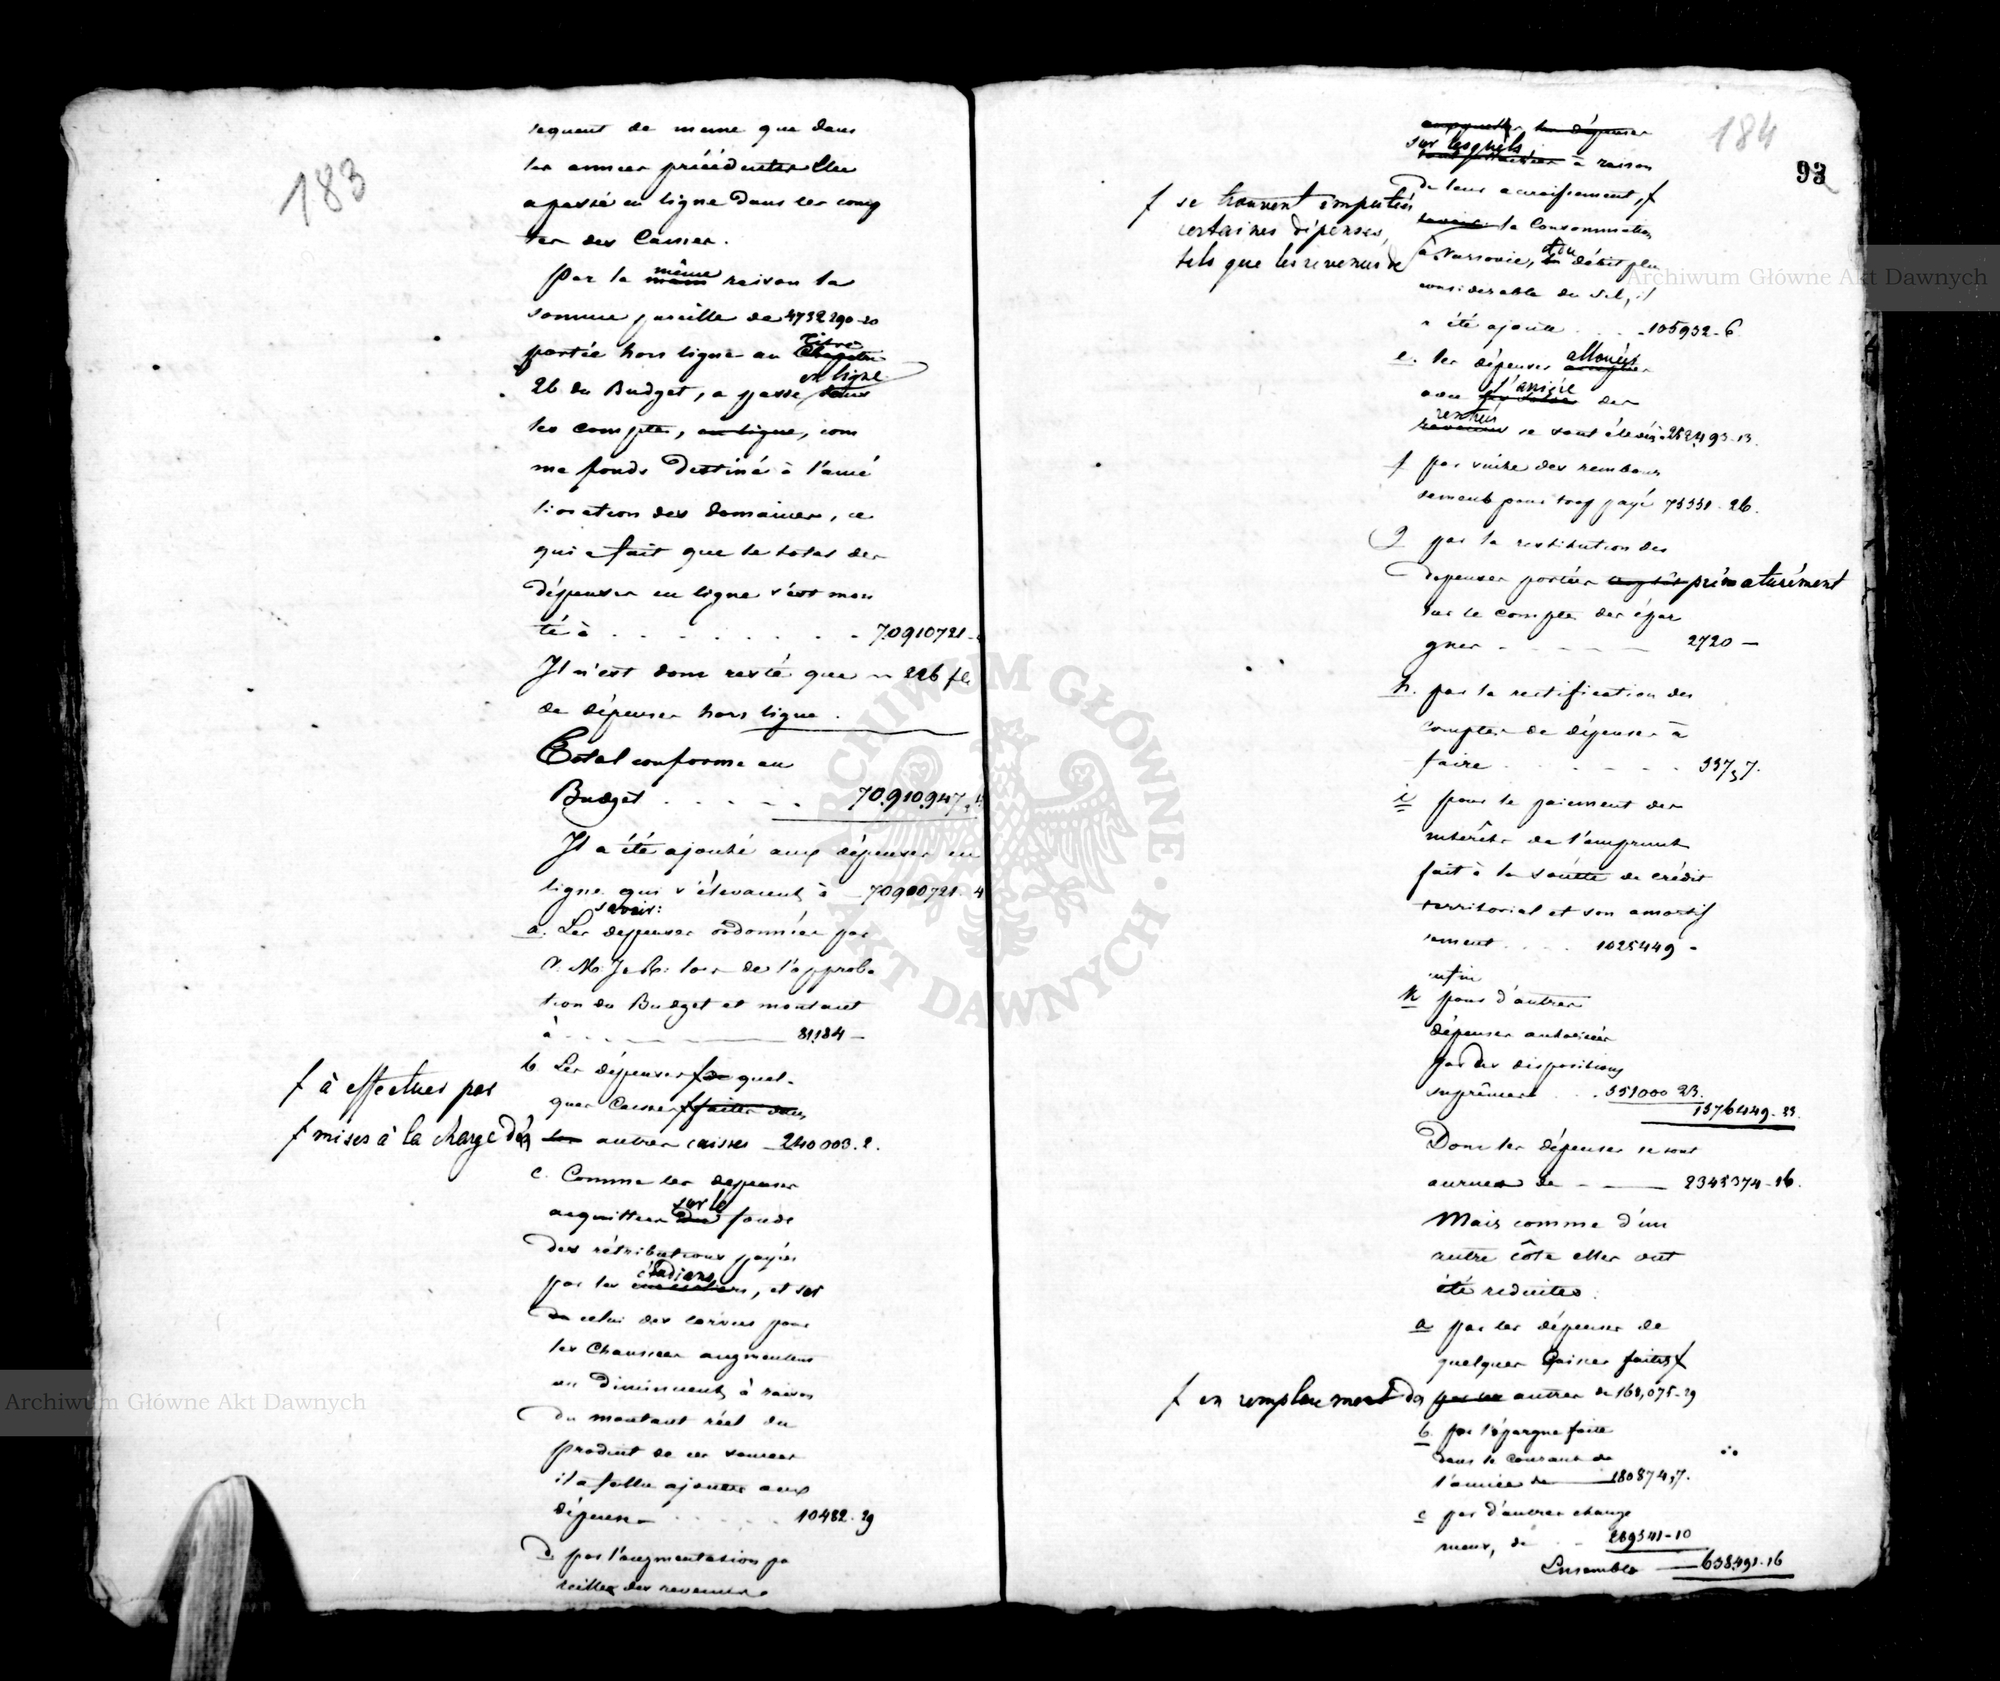 183
sequent de meme que dans
les années précédentes Elle
a passé en ligne dans les comp
tes des Caisses.
Par la même raison la
somme pareille de 4732290-20
portée hors ligne au Titre
26 du Budget, a passé en ligne
les comptes, en ligne, com
me fonds destiné à l'amé
lioration des domaines, ce
qui a fait que le total des
dépenses en ligne s'est mon
té à . . . . . . . 70910721-
Il n'est donc resté que 226 fl
de dépenses hors ligne.
Total conforme au
Budget . . . . . 70.910.947
Il a été ajouté aux dépenses en
ligne qui s'élevaient à 70900721-4
savoir:
a. Les dépenses ordonnées par
S. M. I. & R. lors de l'approba
tion du Budget et montant
à 81,184 —
b Les dépenses f de quel-
f à effectuer par
ques Caisses f faites dans
f mises à la charge des
les autres caisses 240003.2.
c. Comme les depenses
acquittées sur le fonds
des rétributions payées
par les étudians, et sur
de celui des corvées pour
les Chaussées augmentent
ou diminuent, à raison
du montant réel du
produit de ces sources
il a fallu ajouter aux
dépenses . . . . . 10482-29
d. par l'augmentation pa
reille des revenus
184
93
les dépenses
sur lesquels à raison
de leur accroissement, f
f se trouvent imputées
certaines dépenses,
tels que les revenus de
la Consommation
à Varsovie, et du débit plus
considerable du Sel, il
a été ajouté . . . 105932-6
e. les dépenses allouées
avec l'arriéré des
rentrés se sont élevées 252,493-13.
f par suite des rembour
sements pour trop payé 75551-26.
g par la restitution des
depenses portées prématurément
sur le compte des épar
gnes . . . . . 2720 —
h. par la rectification des
comptes de dépenses à
faire . . . . . . 557,7.
i pour le paiement des
intérêts de l'emprunt
fait à la Société de crédit
territorial et son amortis
sement . . . . 1025449 -
enfin
k pour d'autres
dépenses autorisées
par des dispositions
suprêmes . . . 551000 23.
1576449-23.
Donc les dépenses se sont
accrues de — 2343374-16.
Mais comme d'un
autre côté elles ont
été reduites:
a par les dépenses de
quelques Caisses faites f
f en remplacement des
par les autres de 168,075-29
b par l'épargne faite
dans le courant de
l'année de 180874,7.
c par d'autres change
mens, de . . 289541-10
Ensemble — 638,491-16
ARCHIWUM GŁÓWNE AKT DAWNYCH
Archiwum Główne Akt Dawnych
Archiwum Główne Akt Dawnych